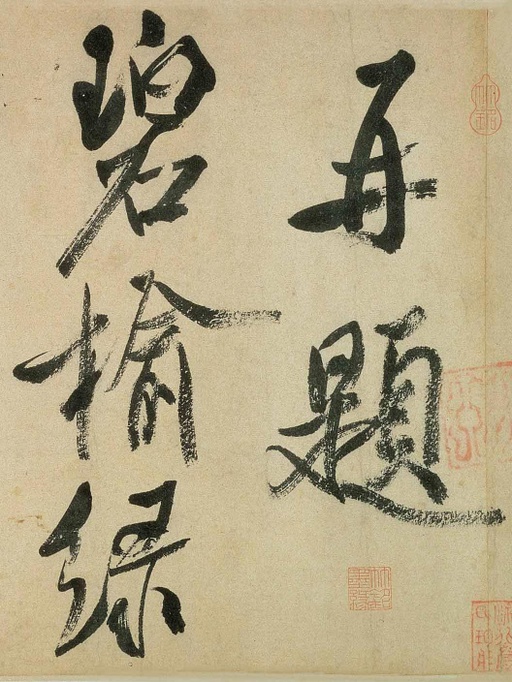 再題
碧榆綠